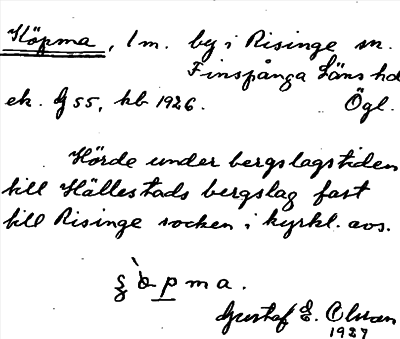 Köpma, 1 m. by i Risinge sn.
Finspånga Läns hd
ek. G 55, hb 1926. Ögl.
Hörde under bergslagstiden
till Hällestads bergslag fast
till Risinge socken i kyrkl. avs.
pma.
Gustaf E. Olsson
1927